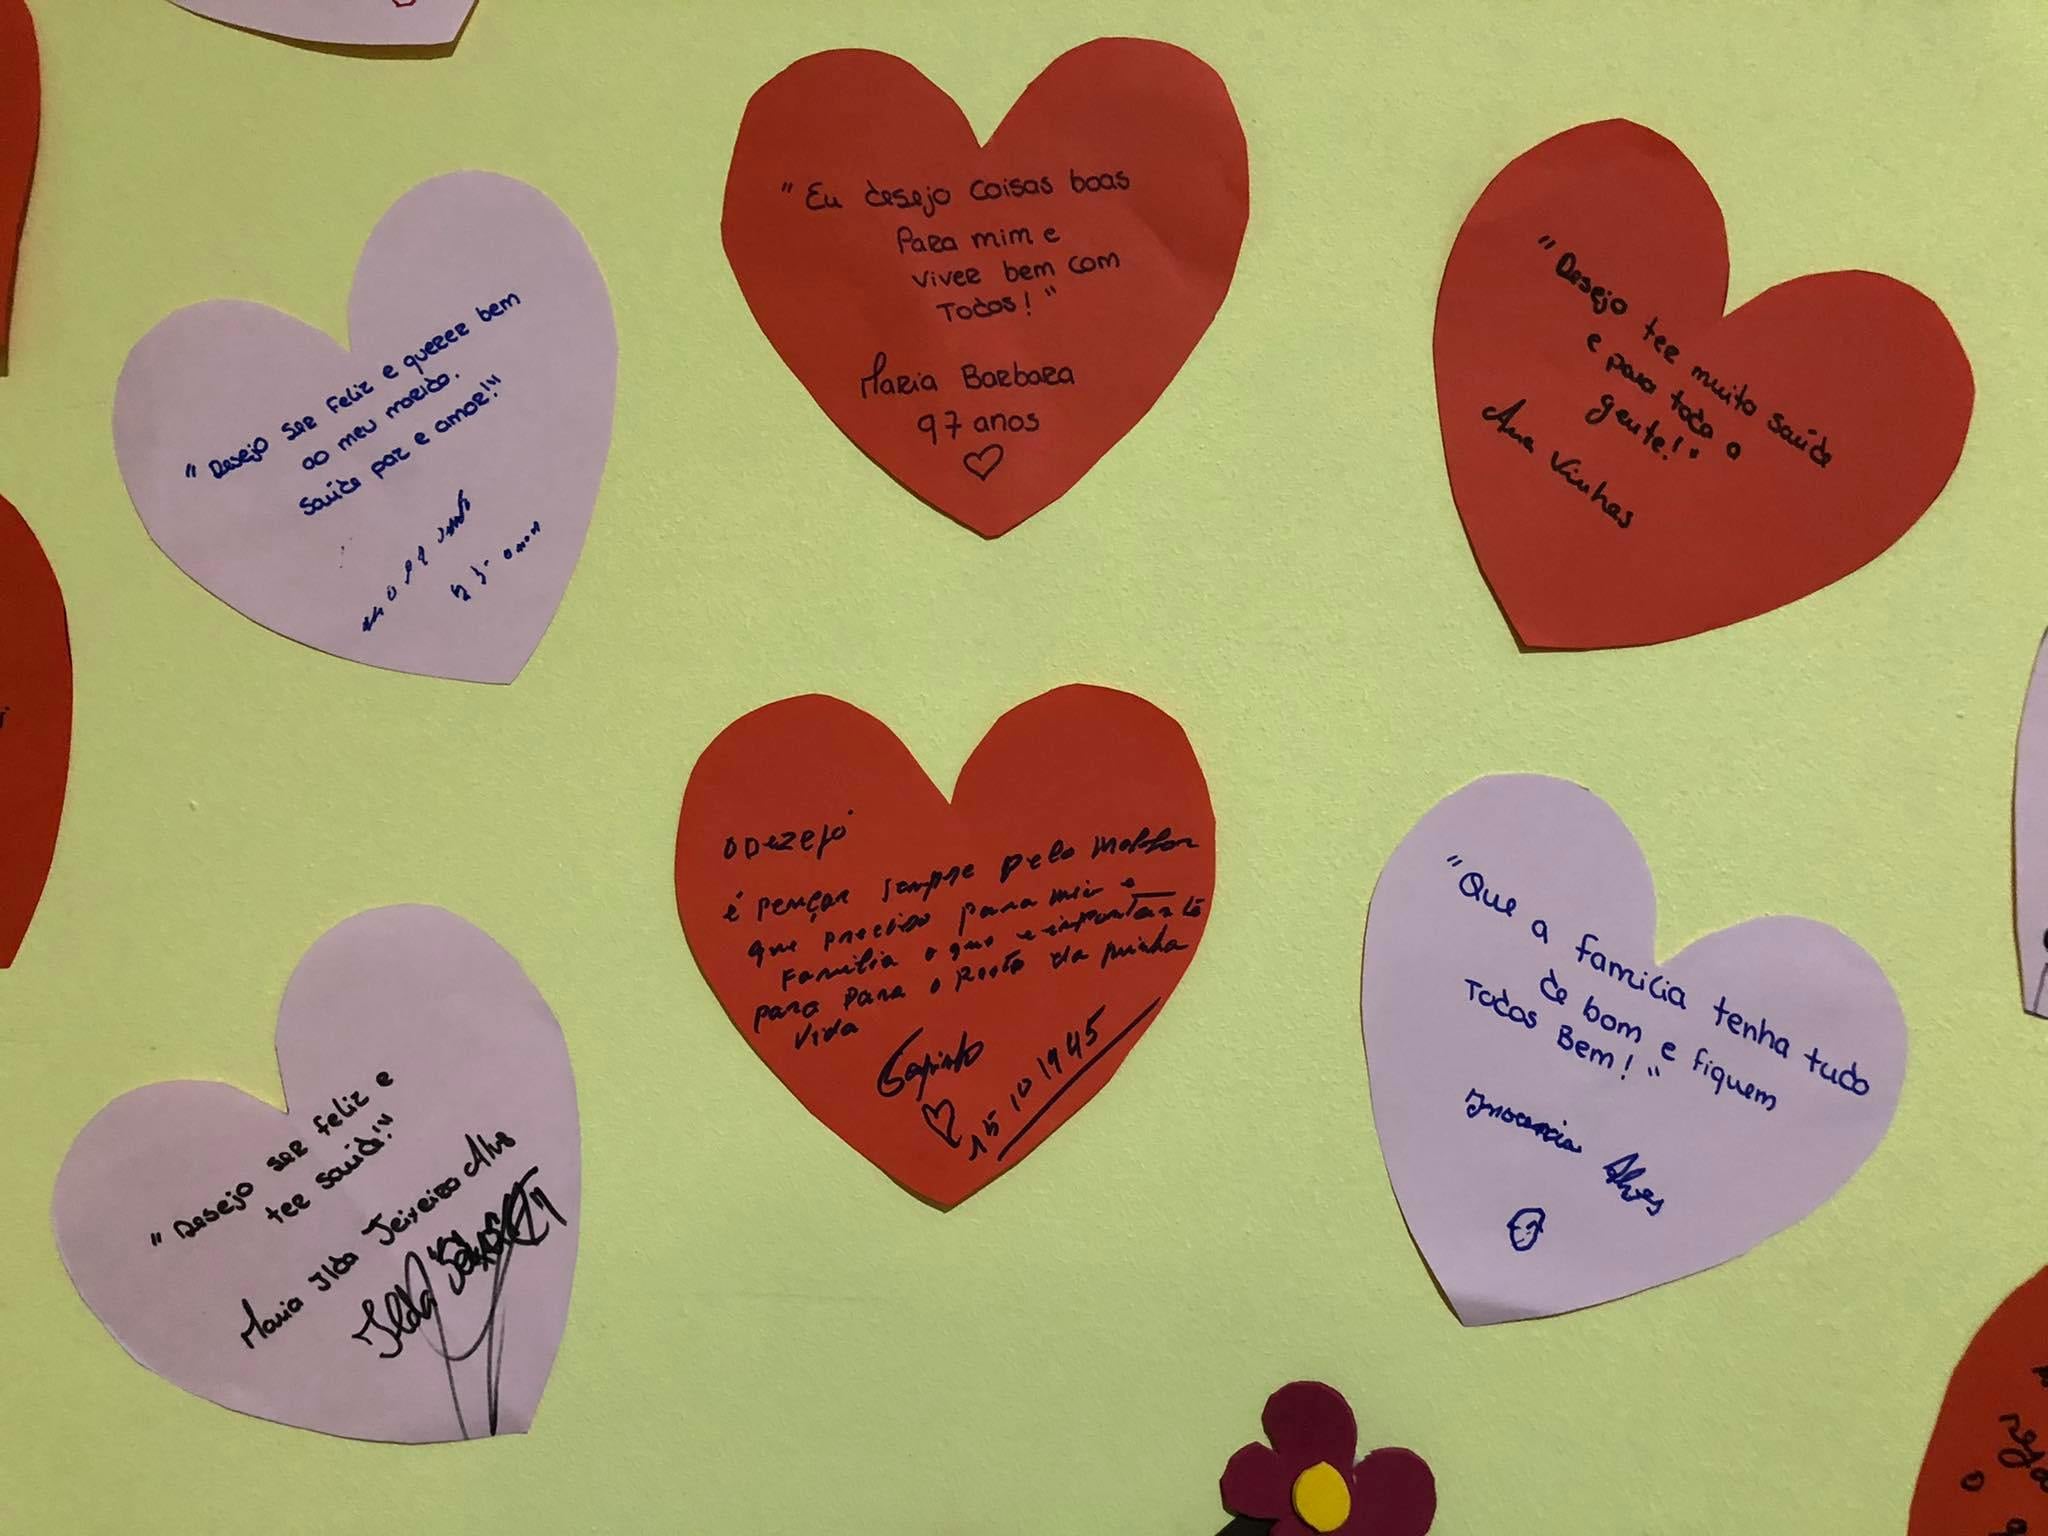 "Desejo ser feliz e querer bem
ao meu marido.
Saúde paz e amor!"
"Eu desejo coisas boas
Para mim e
viver bem com
Todos!"
Maria Barbara
97 anos
"Desejo ter muito saúde
e para toda a
gente!"
Ana Vinhas
"Desejo ser feliz e
ter saúde!"
Maria Ilda Teixeira Alves
Ilda
O DEZEJO
é pençar sempre pelo
que preciso para mim e
Familia o que e importante
para para o Resto da minha
Vida
15 10 1945
"Que a familia tenha tudo
de bom e fiquem
Todos Bem!"
Inocencia Alves